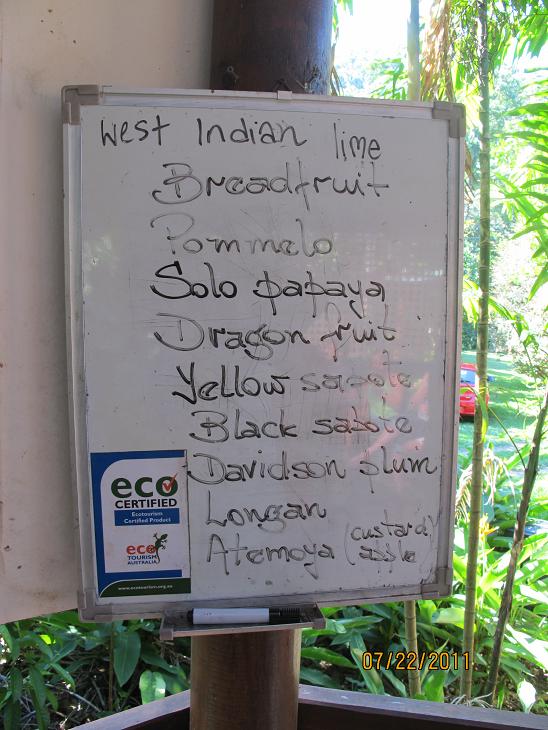 West Indian lime
Breadfruit
Pommelo
Solo papaya
Dragon fruit
Yellow sapote
Black sapote
Davidson plum
Longan
Atemoya (custard apple
eco
CERTIFIED
Ecotourism
Certified Product
eco
TOURISM
AUSTRALIA
www.ecotourism.org.au
07/22/2011